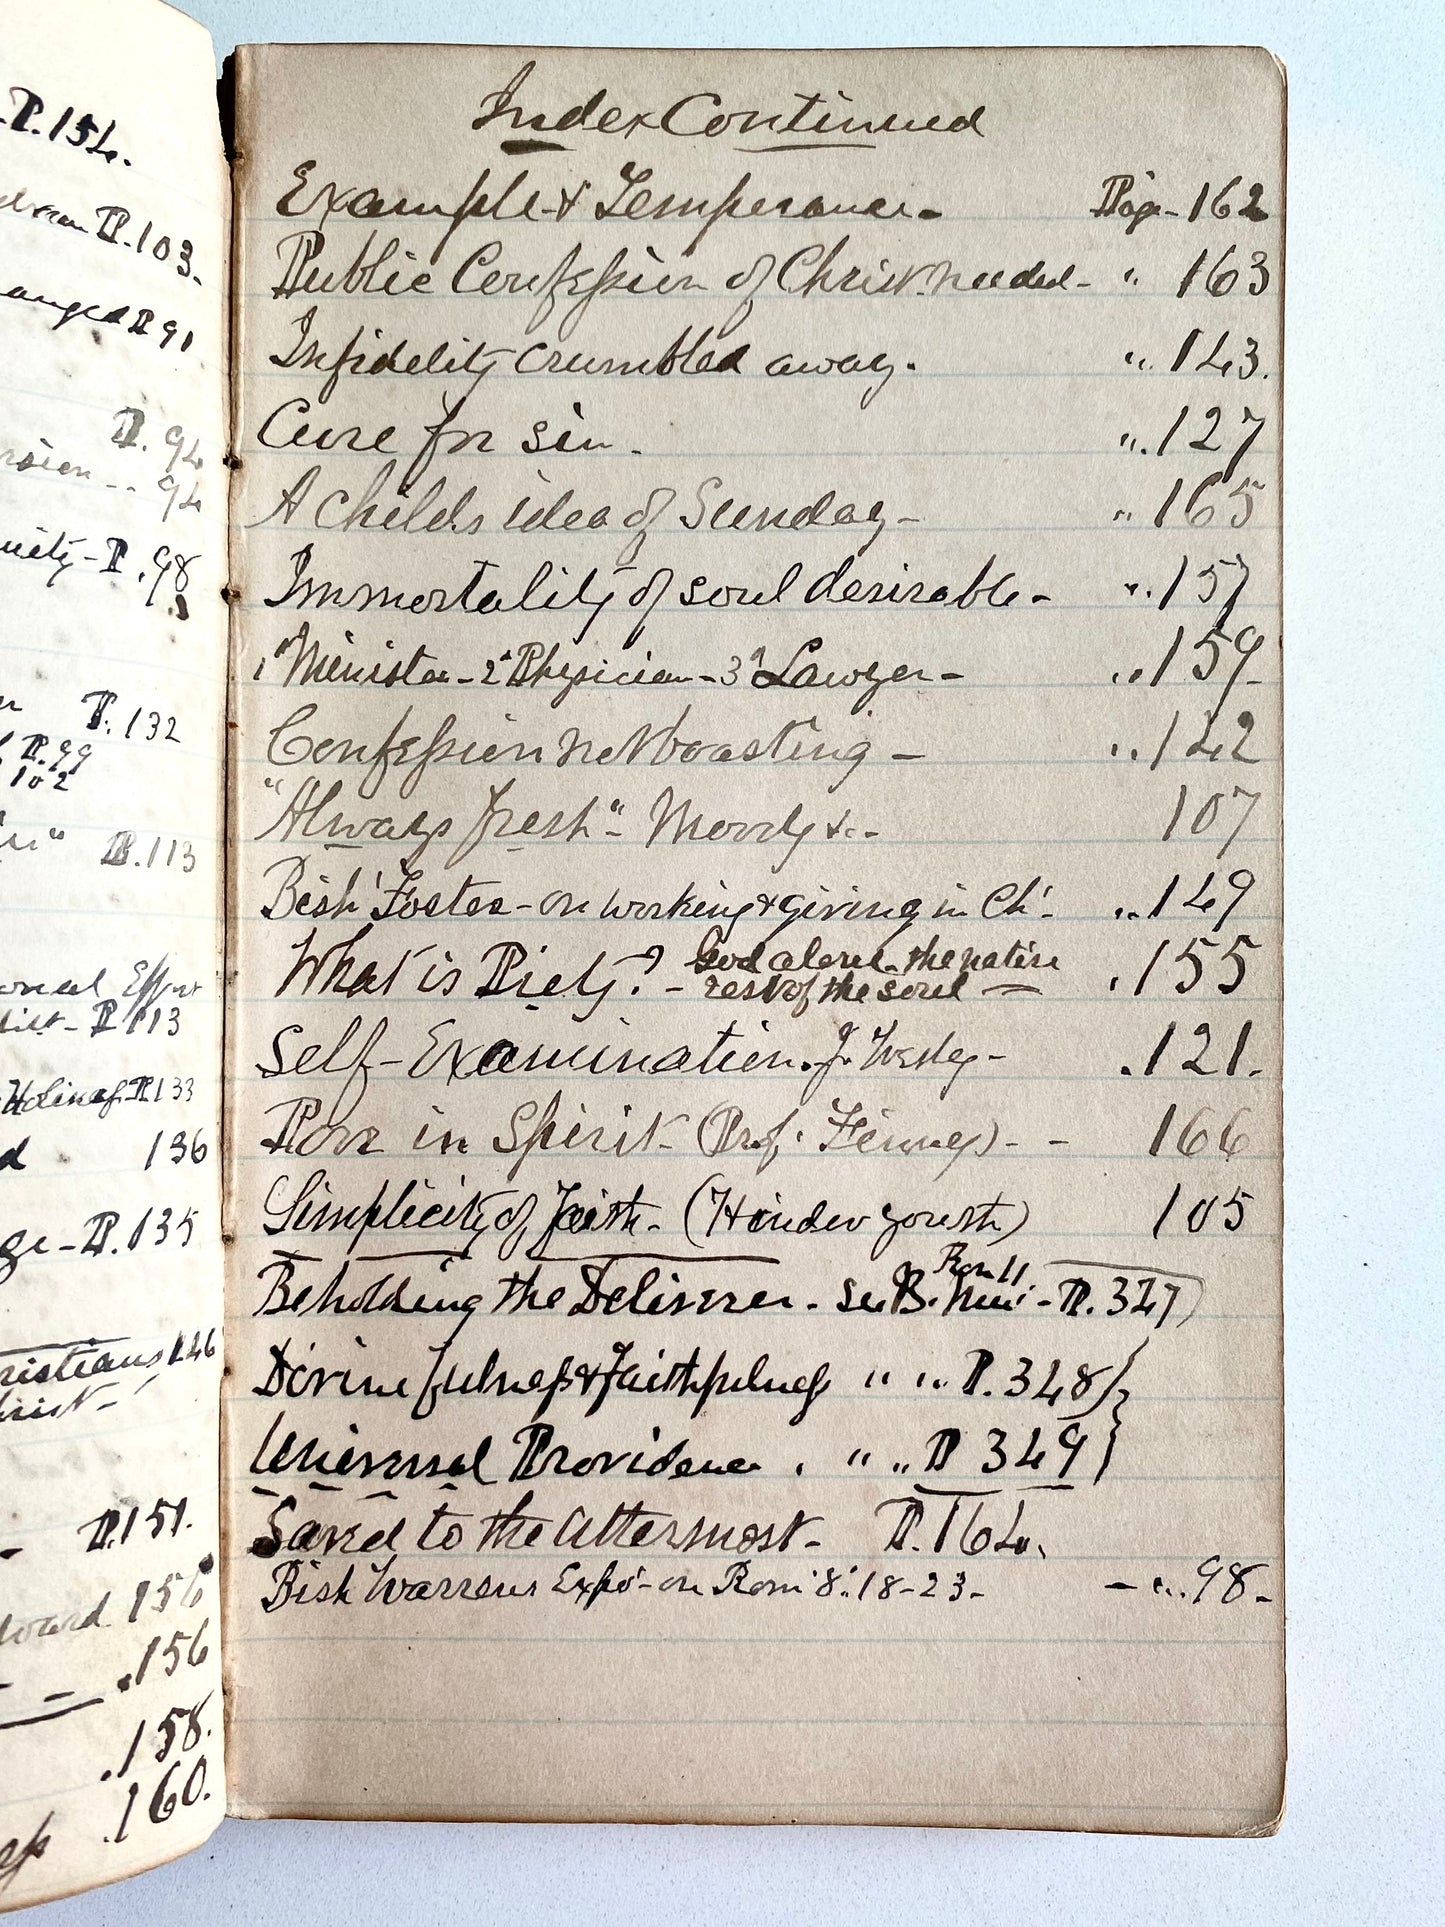 P.154.
P.103.
anged P 91
P. 94
94
P. 98
P. 132
P. 99
102
P. 113
onal Effort
P 113
Holiness P 133
136
P. 135
ristians 146
P. 151.
ward 156
.156
.158.
.160.
Index Continued
Example & Temperance - Page - 162
Public Confession of Christ needed - " 163
Infidelity crumbled away. " 143.
Cure for sin. " 127
A childs idea of Sunday - " 165
Immortality of soul desirable - " 157
1st Minister - 2d Physician - 3d Lawyer - " 159
Confession not boasting - " 142
"Always fresh" - Moody &c - 107
Bish' Foster - on working & giving in Ch'. " 149
What is Piety? - God alone the native
rest of the soul - 155
Self-Examination. J. Wesley - .121.
Poor in Spirit - (Prof. Finney) - - 166
Simplicity of Faith - (Hindu youth) 105
Rom 11
Beholding the Deliverer - See B. - P. 347)
Divine fulness & Faithfulness " " P. 348)
Universal Providence. " " P 349}
Saved to the uttermost - P. 164.
Bish Warrens Expo' - on Rom' 8: 18-23 - - " 98 -